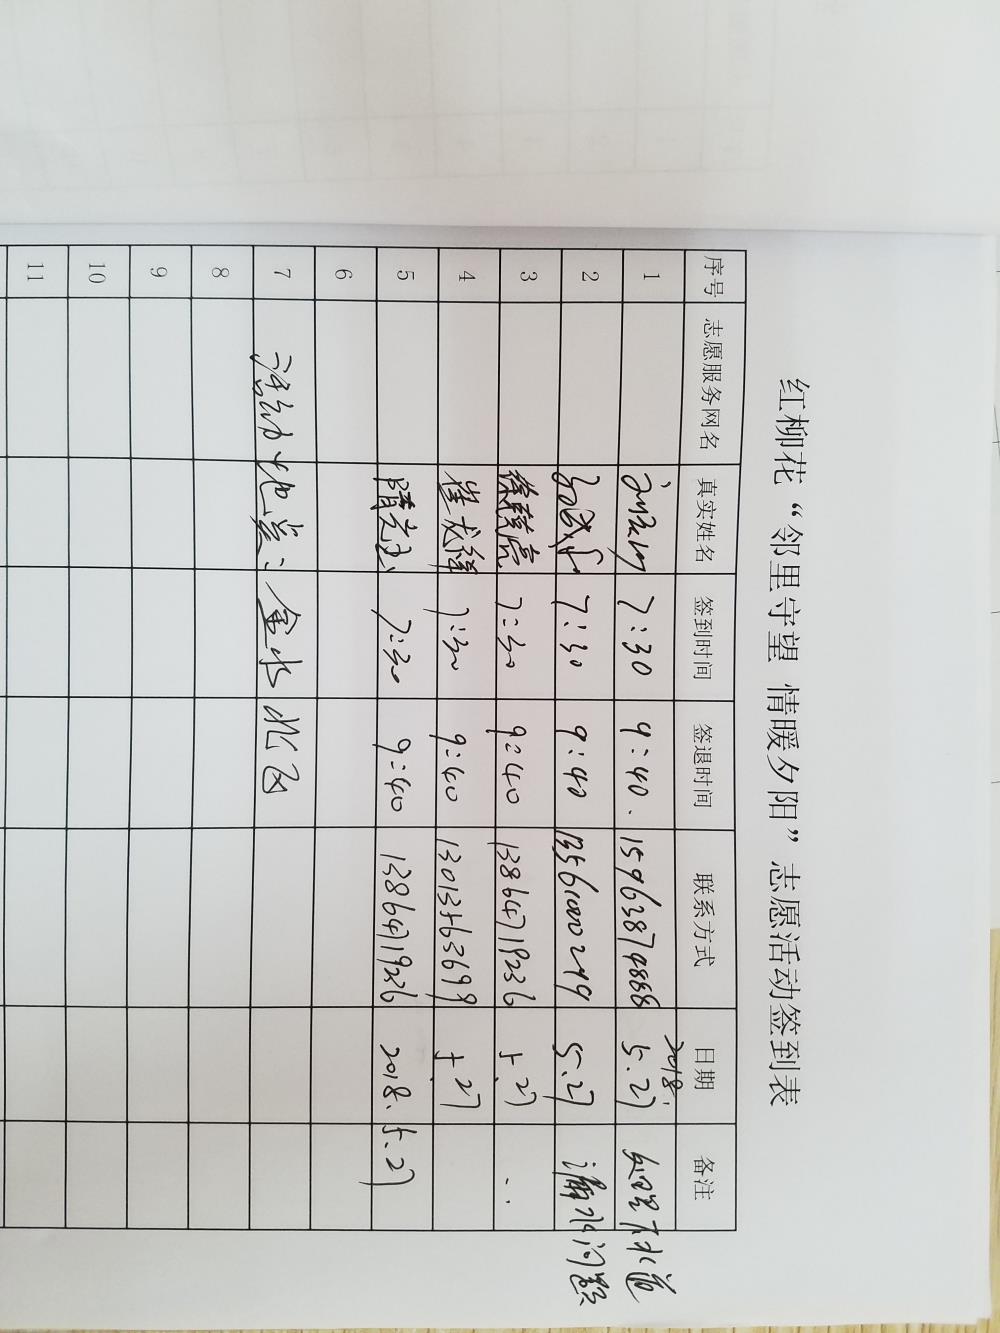 红柳花“邻里守望 情暖夕阳”志愿活动签到表
序号 志愿服务网名 真实姓名 签到时间 签退时间 联系方式 日期 备注
1 7:30 9:40. 15963874888 2018. 5.27 处理下水道
2 7:30 9:40 5.27 漏水问题
3 7:30 9:40 13864719236 5.27
4 崔龙祥 7:30 9:40 13013563699 5.27
5 7:30 9:40 13864719236 2018.5.27
6
7 活动地点：金水北区
8
9
10
11